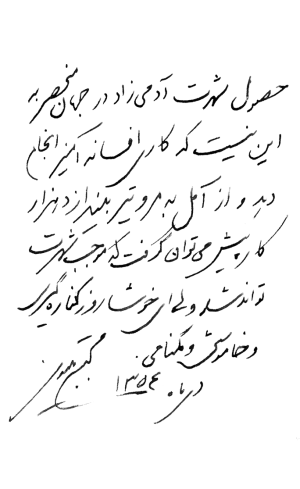 حصول شهرت آدمی زاد در جهان منحصر به
این نیست که کاری افسانه آمیز انجام
دهد و از آمل به مرو تیر بکند از د هزار
کار پیش می‌توان گرفت که موجب شهرت
تواند شد ولی ای خوشا روزگار گیری
و خاموشی و گمنامی.
مجتبی مینوی
دی ماه ۱۳۵۴